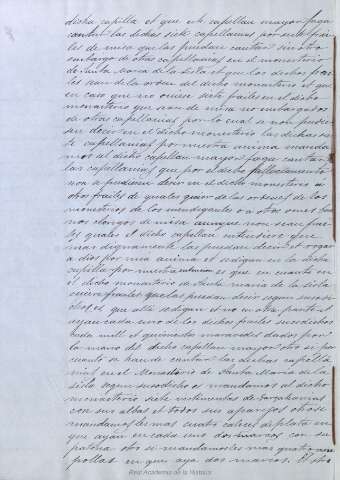 dicha capilla et que este capellan mayor faga
cantar las dichas siete capellanias por siete frai
les de misa que las puedan cantar sin otro
embargo de otras capellanias en el monesterio
de Santa Maria de la Sisla et que los dichos frai
les sean de la orden del dicho monesterio et que
en caso que no oviese siete frailes en el dicho
monesterio que sean de misa no embargados
de otras capellanias por lo cual se non pudie
sen decir en el dicho monesterio las dichas sie
te capellanias por nuestra anima manda
mos al dicho capellan mayor faga cantar
las capellanias que por el dicho fallescimiento
non se pudieren decir en el dicho monesterio a
otros frailes de quales quier de las ordenes de los
monesterios de los mendigantes o a otros omes bue
nos clerigos de misa aunque non sean frai
les quales el dicho capellan entendiere que
mas dignamente las puedan decir et rogar
a dios por mi anima et se digan en la dicha
capilla por nuestra intencion es que en cuanto en
el dicho monesterio de Santa Maria de la Sisla
oviere frailes que las puedan decir segun susodi
cho es et que alli se digan et no en otra parte et
ayan cada uno de los dichos frailes susodichos
cada mill et quinientos maravedis dados por
la mano del dicho capellan mayor otro si por
cuanto se han de cantar las dichas capella
nias en el Monesterio de Santa Maria de la
Sisla segun susodicho es mandamos al dicho
monesterio siete vestimentas de zarzahanias
con sus albas et todos sus aparejos otrosi
mandamosles mas cuatro calices de plata en
que ayan en cada uno dos marcos con su
patena otro si mandamosles mas quatro am
pollas en que aya dos marcos. Et otro
Real Academia de la Historia